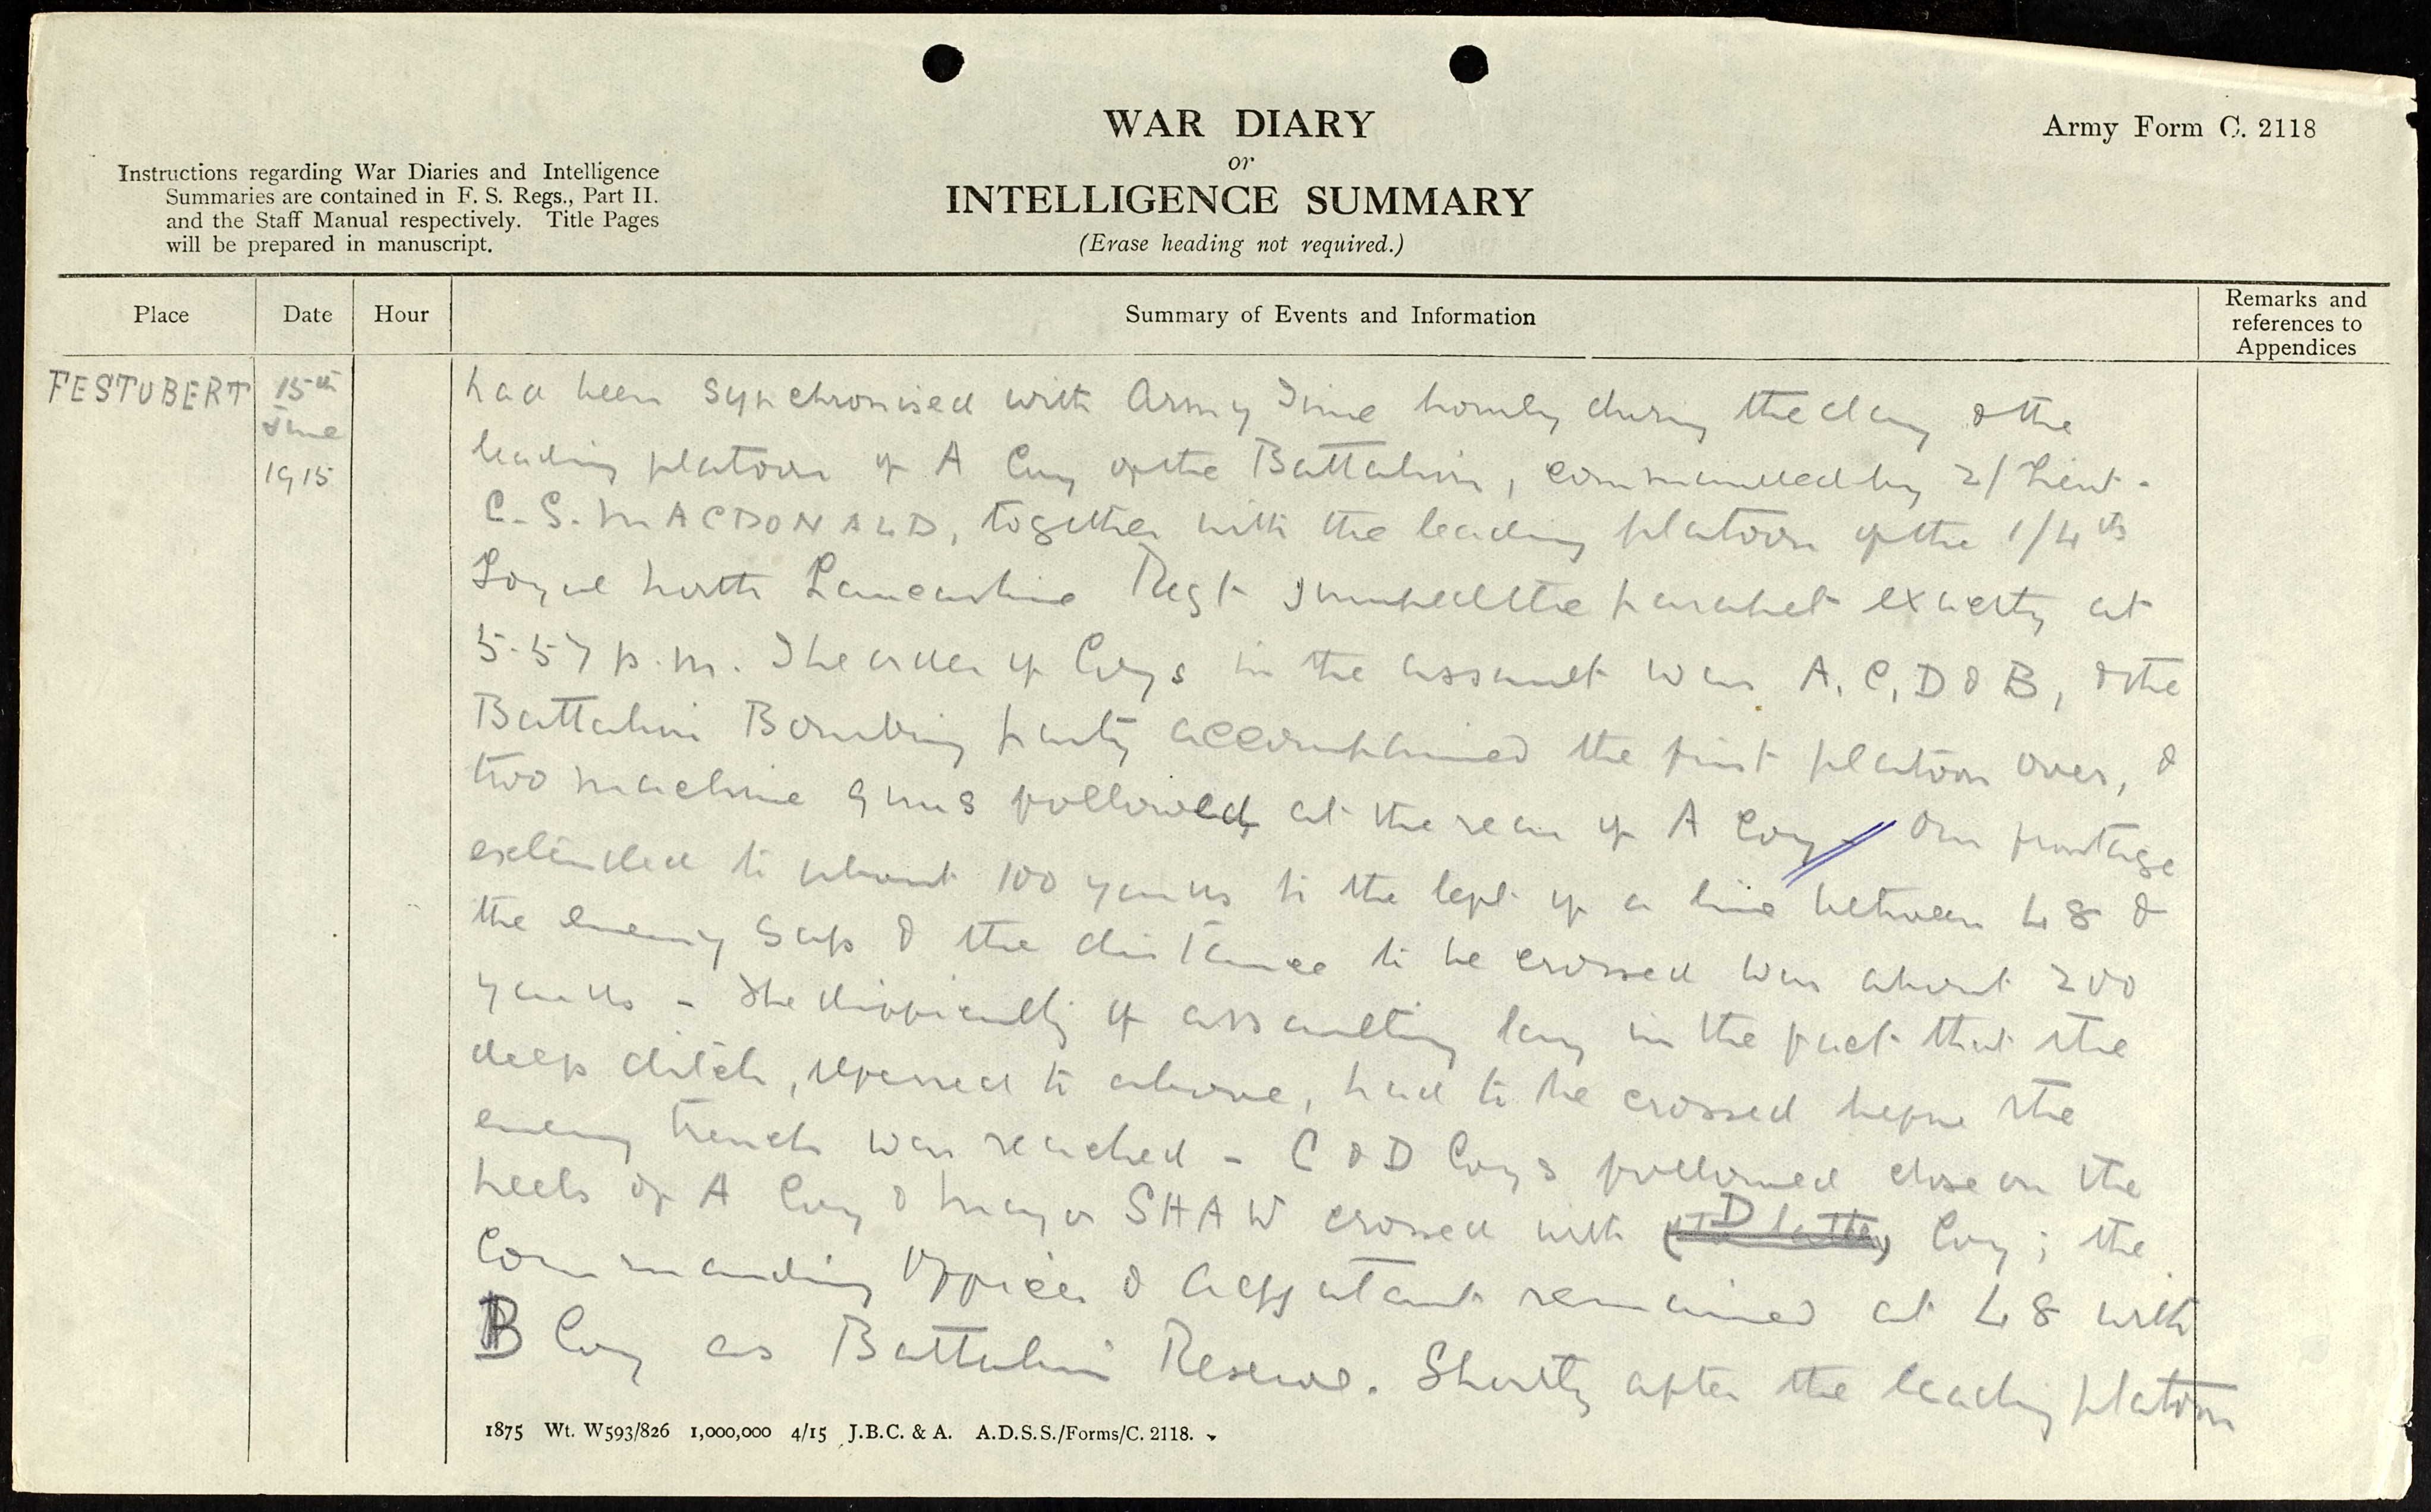 WAR DIARY
or
INTELLIGENCE SUMMARY
(Erase heading not required.)
Army Form C. 2118
Instructions regarding War Diaries and Intelligence
Summaries are contained in F. S. Regs., Part II.
and the Staff Manual respectively. Title Pages
will be prepared in manuscript.
Place
Date
Hour
Summary of Events and Information
Remarks and
references to
Appendices
FESTUBERT
15th
June
1915
had been synchronised with Army Time hourly during the day & the
leading platoon of A Coy of the Battalion, commanded by 2/Lieut.
C.S. MACDONALD, together with the leading platoon of the 1/4th
Loyal North Lancashire Regt jumped the parapet exactly at
5.57 p.m. The order of Coys in the assault was A, C, D & B, & the
Battalion Bombing party accompanied the first platoon over, &
two machine guns followed at the rear of A Coy - Our frontage
extended to about 100 yards to the left of a line between L8 &
the enemy Sap & the distance to be crossed was about 200
yards - The difficulty of assaulting lay in the fact that the
deep ditch, referred to above, had to be crossed before the
enemy trench was reached - C & D Coys followed close on the
heels of A Coy & Major SHAW crossed with (the latter) D Coy; the
Commanding Officer & Adjutant remained at L8 with
B Coy as Battalion Reserve. Shortly after the leading platoon
1875 Wt. W593/826 1,000,000 4/15 J.B.C. & A. A.D.S.S./Forms/C. 2118.